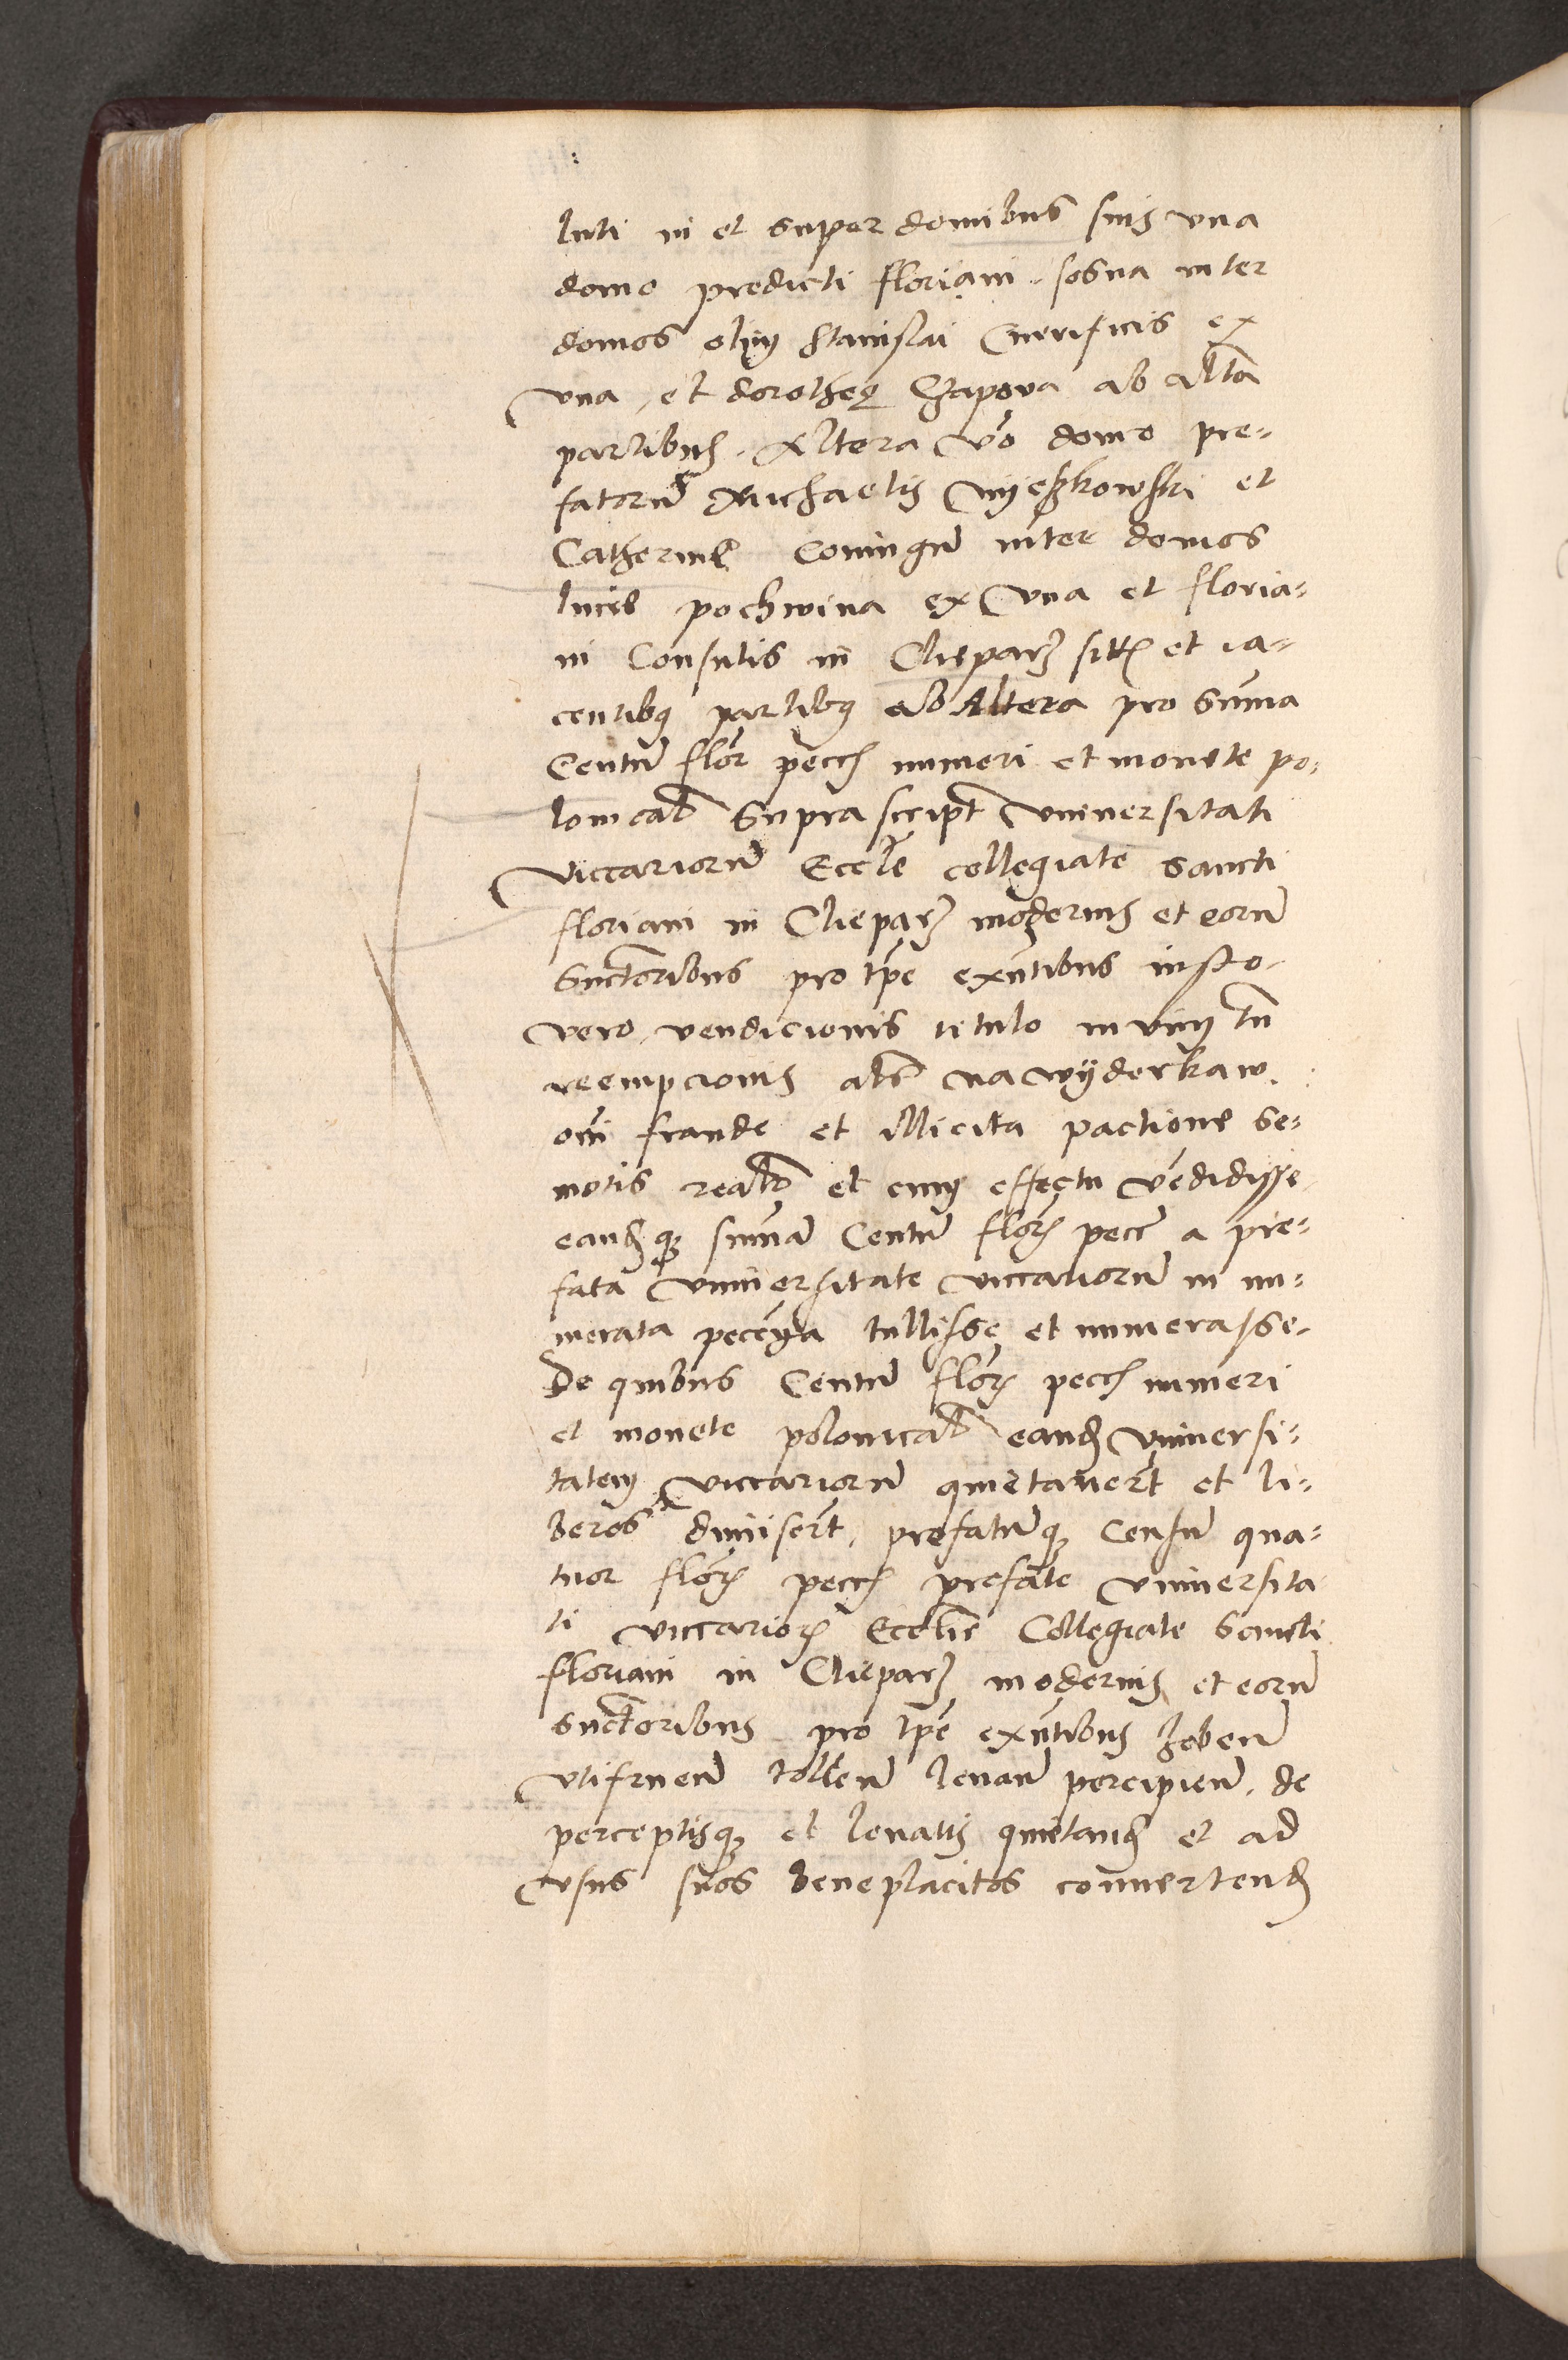 luti in et super domibus suis una
domo predicti floriani sosna inter
domos olim Stanislai Cnerificis ex
una, et dorotheę Czapova ab altᵃ
partibus. Altera vo domo pre-
fatorum Michaelis Myeszkowski et
Catherine Coniugum inter domos
lucie pochwina ex una et floria-
ni Consulis in Clieparz sitis et ia-
centibus partibus ab Altera pro suma
Centum flor pecc numeri et monete po-
lonicalis Supra script Universitati
viccariorum Eccle collegiate sancti
floriani in Clieparz modernis et eorum
Suctoribus pro tpe exntibus iusto
vero vendicionis titulo in vim tn
reempcionis als na wyderkaw.
omi fraude et illicita pactione se-
motis realr et cum effectu vendidisse
eandque sumam Centum flor pecc a pre-
fata universitate viccariorum in nu-
merata peccunia tullisse et numerasse.
De quibus Centum flor pecc numeri
et monete polonicalis eand universi-
tatem viccariorum quietavert et li-
beros dimisert, prefatumque Censum qua-
tuor flor pecc prefate universita
ti viccarior Ecclie Collegiate Sancti
floriani in Clieparz modernis et eorum
suctoribus pro tpe exntibus heben
utifruen tollen levan percipien, de
perceptisque et levatis quietand et ad
usus suos beneplacitos convertend